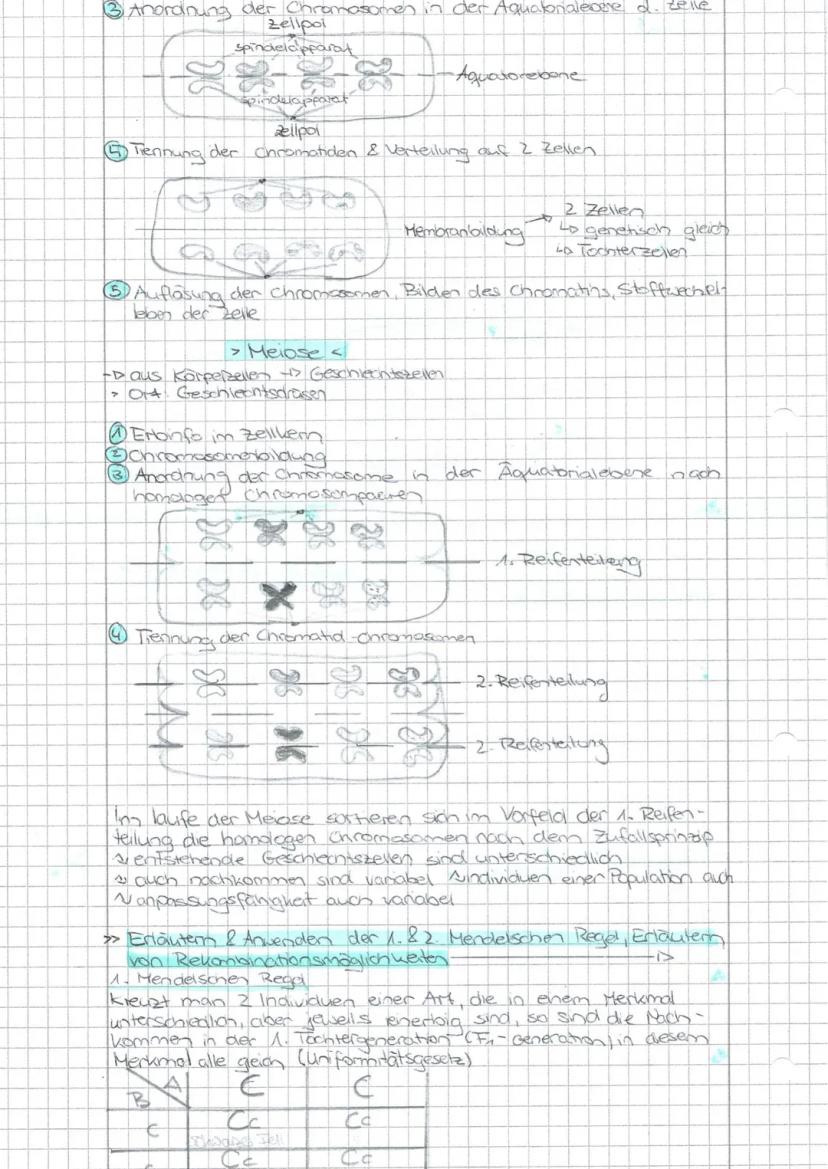 ③ Anordnung der Chromosomen in der Äquatorialebene d. Zelle
Zellpol
Spindelapparat
Äquatorebene
Spindelapparat
Zellpol
⑤ Trennung der Chromatiden & Verteilung auf 2 Zellen
Membranbildung → 2 Zellen
↳ genetisch gleich
↳ Tochterzellen
⑤ Auflösung der Chromosomen, Bilden des Chromatins, Stoffwechel-
leben der Zelle
> Meiose <
→ aus Körperzellen → Geschlechtszellen
> Ort: Geschlechtsdrüsen
① Erbinfo im Zellkern
② Chromosomenbildung
③ Anordnung der Chromosome in der Äquatorialebene nach
homologef Chromosompaaren
1. Reifenteilung
④ Trennung der Chromatid-chromosomen
2. Reifenteilung
2. Reifenteilung
Im laufe der Meiose sortieren sich im Vorfeld der 1. Reifen-
teilung die homologen Chromosomen nach dem Zufallsprinzip
↝ entstehende Geschlechtszellen sind unterschiedlich
↝ auch nachkommen sind variabel ↝ Individuen einer Population auch
↝ anpassungsfähigkeit auch variabel
>> Erläutern & Anwenden der 1. & 2. Mendelschen Regel, Erläutern
von Rekombinationsmöglichkeiten
1. Mendelschen Regel
Kreuzt man 2 Individuen einer Art, die in einem Merkmal
unterschiedlich, aber jeweils reinerbig sind, so sind die Nach-
kommen in der 1. Tochtergeneration (F₁-Generation) in diesem
Merkmal alle gleich (Uniformitätsgesetz)
A C C
B
c Cc Cc
Cc Cc